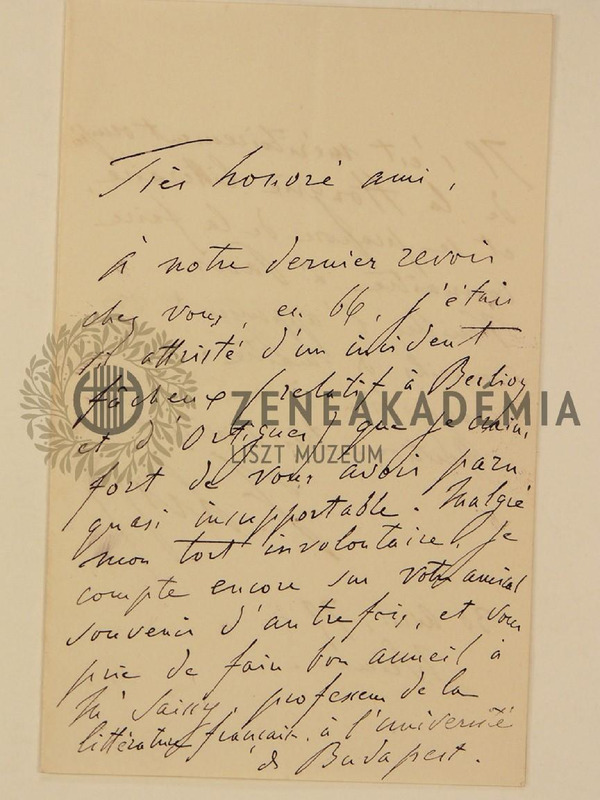 Très honoré ami,
à notre dernier revoir
chez vous, en 66, j'étais
si attristé d'un incident
fâcheux (relatif à Berlioz
et d'Ortigue) que je crains
fort de vous avoir paru
quasi insupportable. Malgré
mon tort involontaire, je
compte encore sur votre amical
souvenir d'autrefois, et vous
prie de faire bon accueil à
Mr Saissy, professeur de la
littérature française à l'université
de Budapest.
ZENEAKADÉMIA
LISZT MÚZEUM